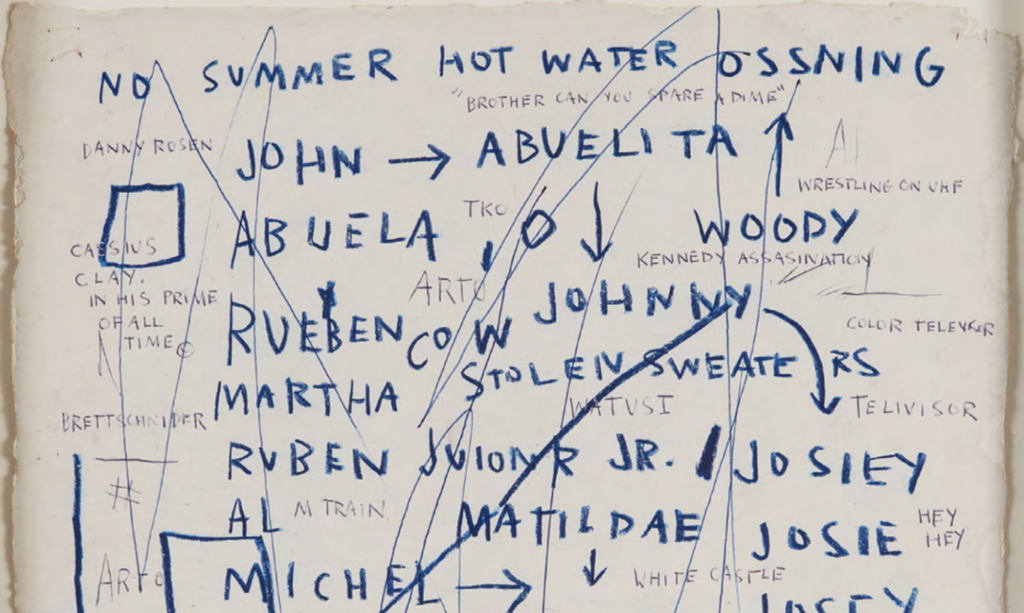 NO SUMMER HOT WATER OSSNING
"BROTHER CAN YOU SPARE A DIME"
DANNY ROSEN
JOHN → ABUELITA
WRESTLING ON UHF
TKO
ABUELA , O ↓ WOODY
CASSIUS
CLAY.
IN HIS PRIME
OF ALL
TIME ©
KENNEDY ASSASINATION
ARTO
JOHNNY
RUEBEN COW
COLOR TELEVISOR
STOLEN SWEATERS
MARTHA
WATUSI
TELIVISOR
BRETTSCHNIDER
RUBEN JUIONR JR. / JOSIEY
#
AL M TRAIN
MATILDAE
JOSIE HEY
HEY
ARTO
MICHEL → ↓
WHITE CASTLE
JOSEY